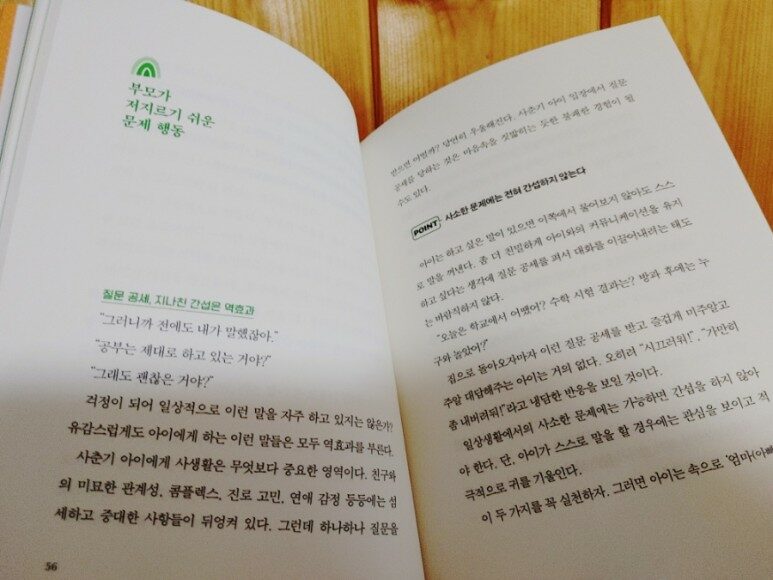 부모가
저지르기 쉬운
문제 행동
질문 공세, 지나친 간섭은 역효과
"그러니까 전에도 내가 말했잖아."
"공부는 제대로 하고 있는 거야?"
"그래도 괜찮은 거야?"
걱정이 되어 일상적으로 이런 말을 자주 하고 있지는 않은가?
유감스럽게도 아이에게 하는 이런 말들은 모두 역효과를 부른다.
사춘기 아이에게 사생활은 무엇보다 중요한 영역이다. 친구와
의 미묘한 관계성, 콤플렉스, 진로 고민, 연애 감정 등등에는 섬
세하고 중대한 사항들이 뒤엉켜 있다. 그런데 하나하나 질문을
56
받으면 어떨까? 당연히 우울해진다. 사춘기 아이 입장에서 질문
공세를 당하는 것은 마음속을 짓밟히는 듯한 불쾌한 경험이 될
수도 있다.
POINT 사소한 문제에는 전혀 간섭하지 않는다
아이는 하고 싶은 말이 있으면 이쪽에서 물어보지 않아도 스스
로 말을 꺼낸다. 좀 더 친밀하게 아이와의 커뮤니케이션을 유지
하고 싶다는 생각에 질문 공세를 펴서 대화를 이끌어내려는 태도
는 바람직하지 않다.
"오늘은 학교에서 어땠어? 수학 시험 결과는? 방과 후에는 누
구와 놀았어?"
집으로 돌아오자마자 이런 질문 공세를 받고 즐겁게 미주알고
주알 대답해주는 아이는 거의 없다. 오히려 "시끄러워!", "가만히
좀 내버려둬!"라고 냉담한 반응을 보일 것이다.
일상생활에서의 사소한 문제에는 가능하면 간섭을 하지 않아
야 한다. 단, 아이가 스스로 말을 할 경우에는 관심을 보이고 적
극적으로 귀를 기울인다.
이 두 가지를 꼭 실천하자. 그러면 아이는 속으로 '엄마(아빠